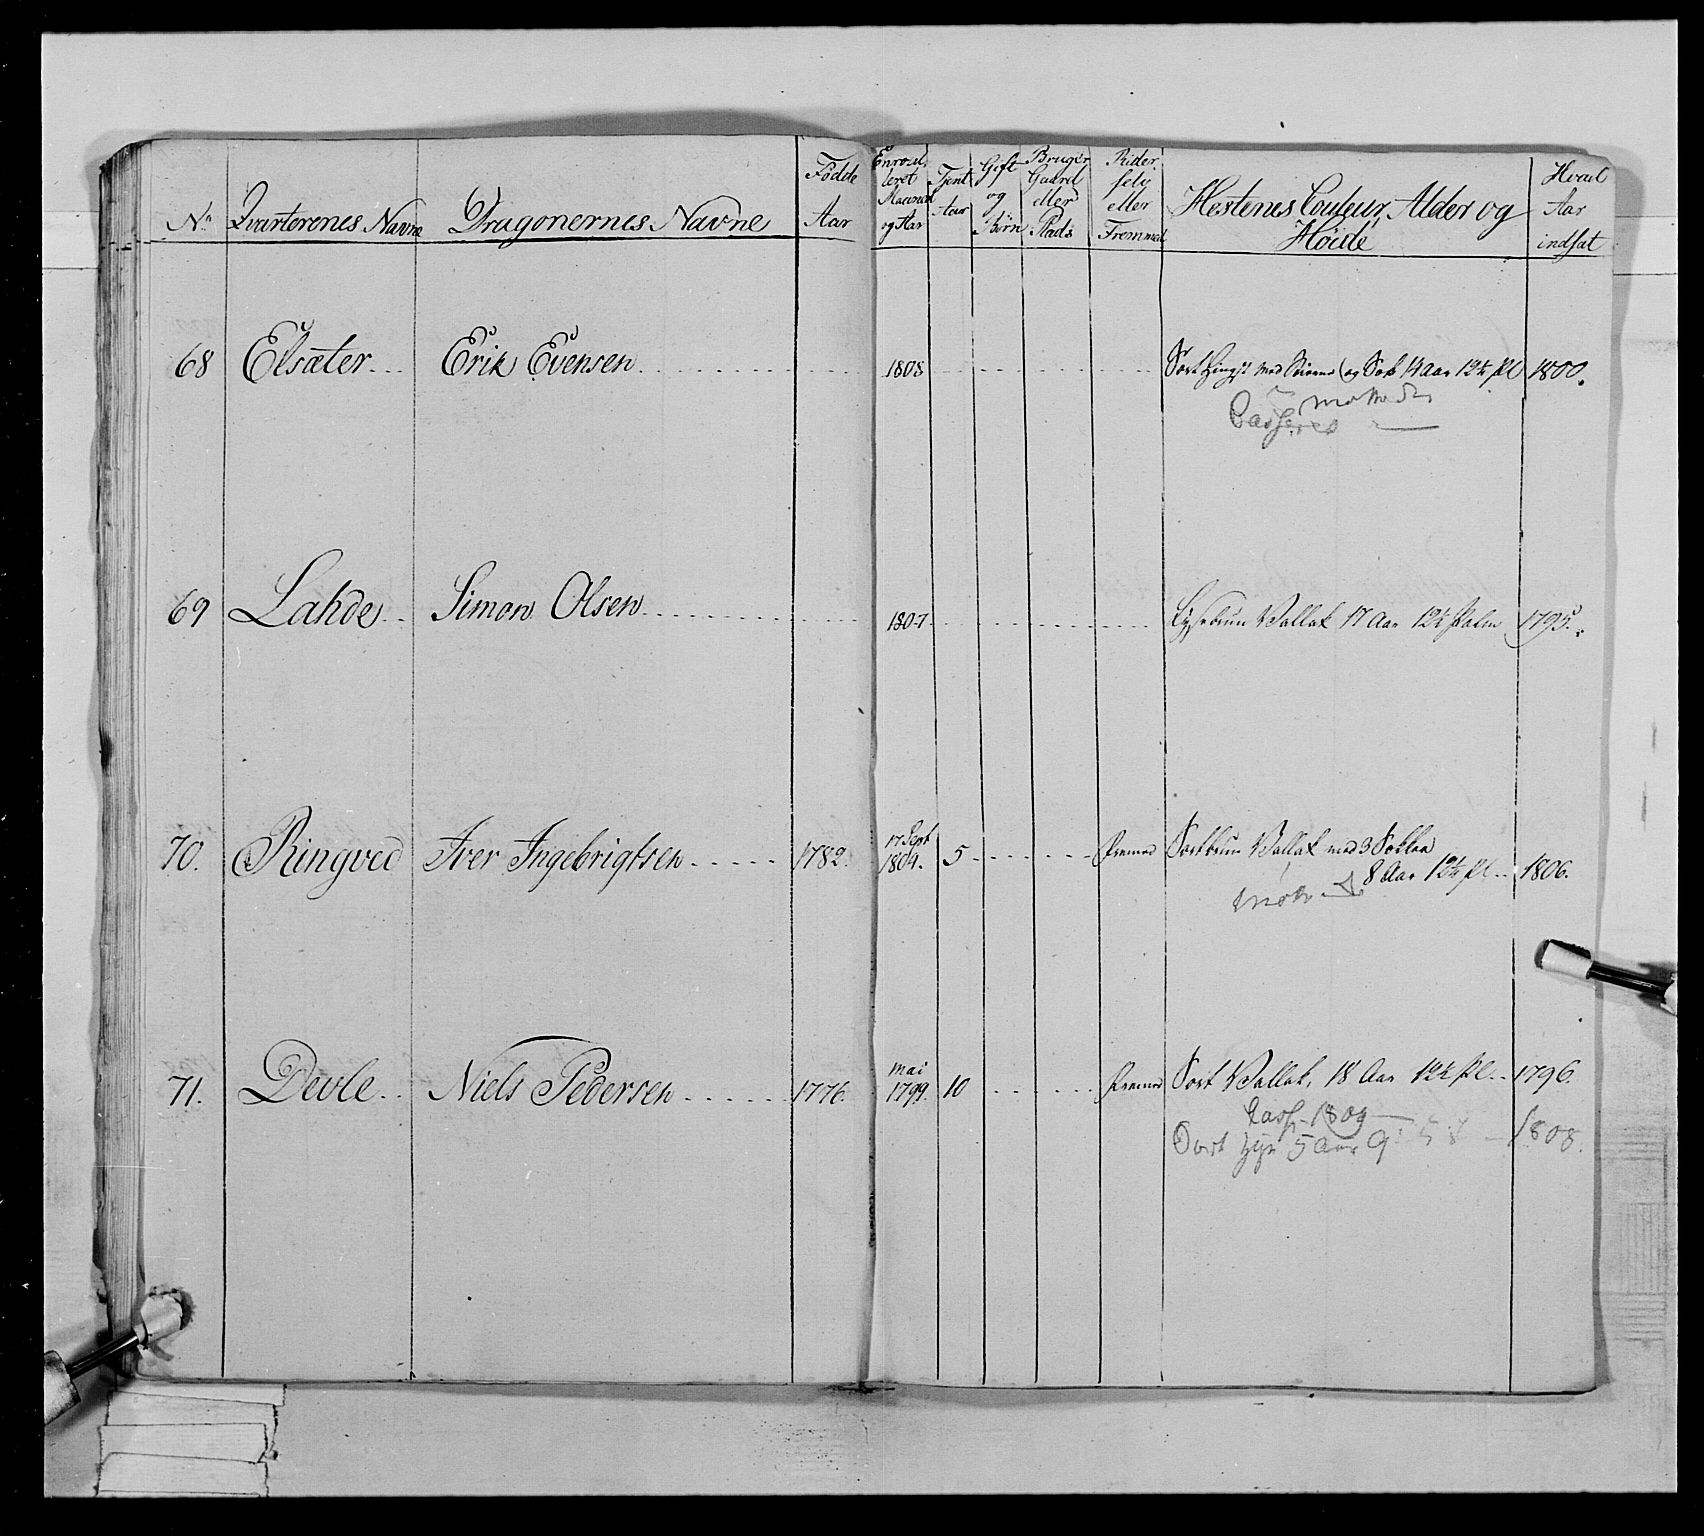 No Qvarterenes Navne Dragonernes Navne Fødde Aar Enroulleret Maaned og Aar Tjent Aar Gift og Børn Bruger Gaard eller Plads Rider selv eller Fremmed Hestenes Couleur, Alder og Høide Hvad Aar indsat
68 Elsæter Erik Evensen 1808 Sort Hingst med Stierne og Sok 14 Aar 12¼ Pl 1800.
Casseres
69 Lahde Simon Olsen 1807 Lysebrun Vallak 17 Aar 12½ Palm 1795.
70. Ringved Iver Ingebrigtsen 1782. 17 Sept 1804. 5 Fremed Sortbrun Vallak med 3 Sokker
8 Aar 12¼ Pl 1806.
71. Devle Niels Pedersen 1776. Mai 1799. 10 Fremed Sort Vallak, 18 Aar 12½ Pl 1796.
Cass. 1809
Sort 5 Aar 9 1808.